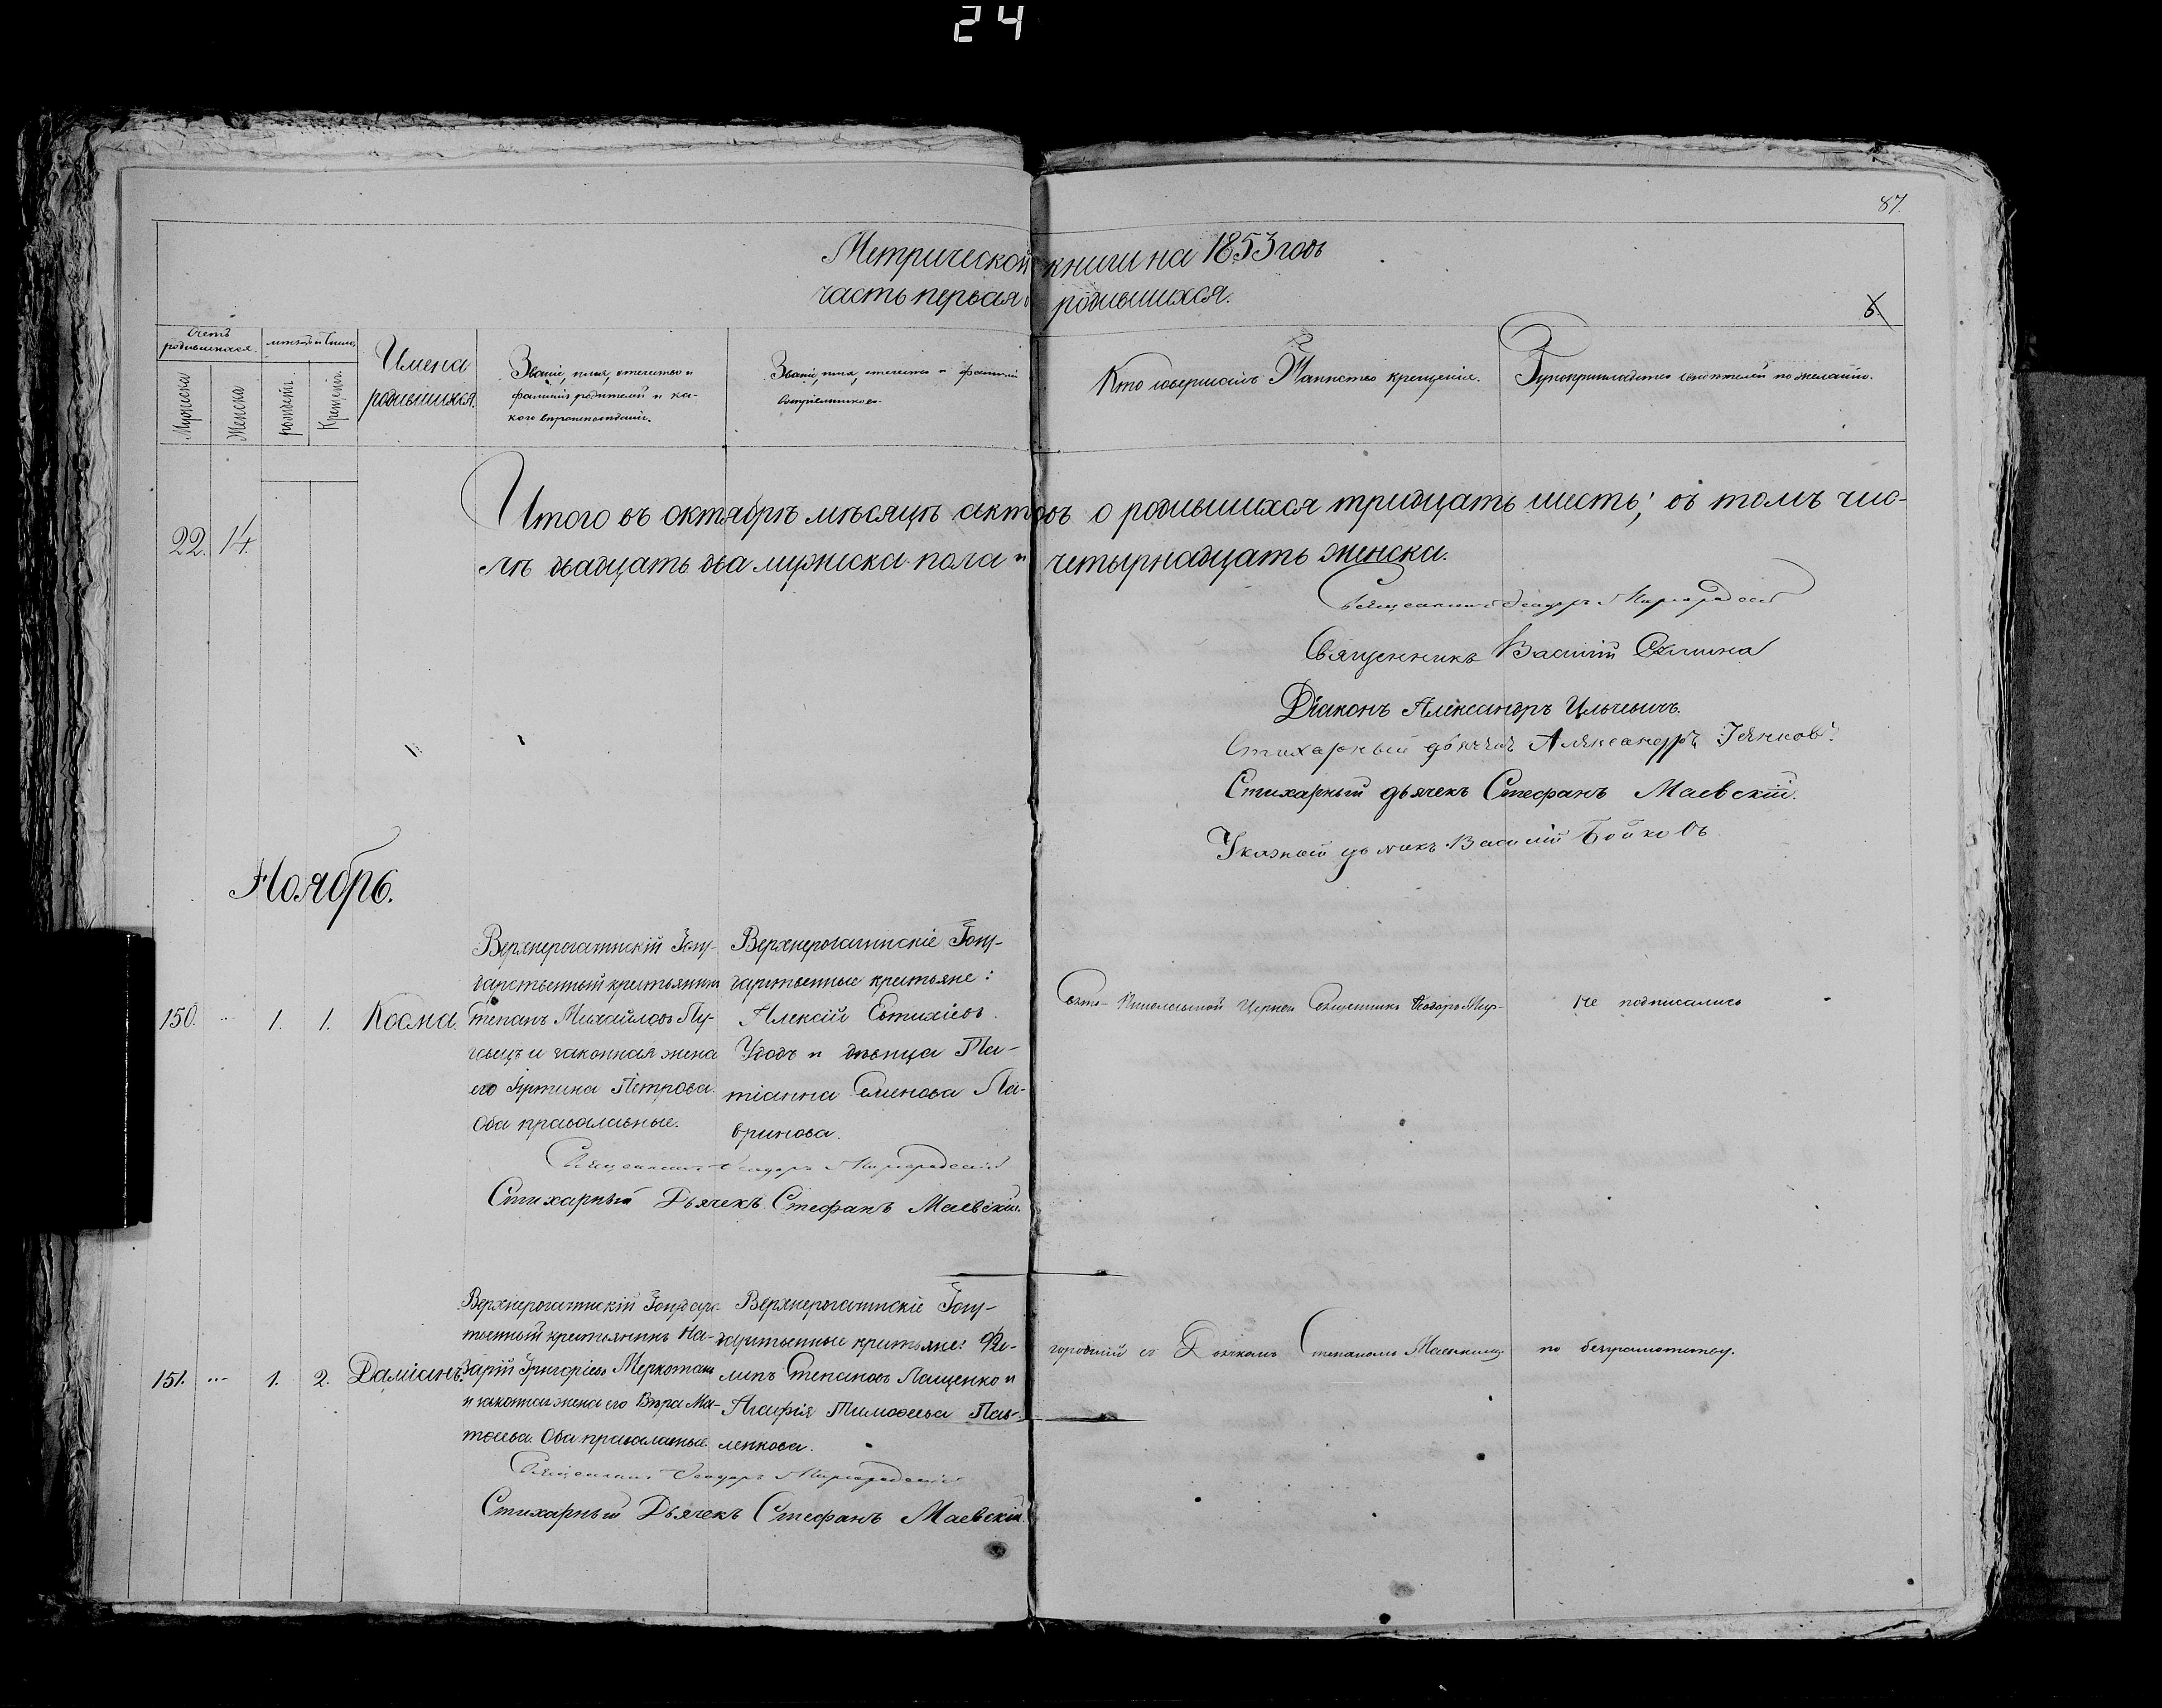 24
87.
Метрической книги на 1853 годъ
часть первая о родившихся.
Счетъ родившихся.
Мужеска
Женска
рожденія.
Крещенія.
Имена родившихся.
Званіе, имя, отчество и
фамилія родителей и ка-
кого вѣроисповѣданія.
Званіе, имя, отчество и фамилія
воспріемниковъ.
Кто совершалъ Таинство крещенія.
Рукоприкладство свидѣтелей по желанію.
Итого въ октябрѣ мѣсяцѣ актовъ о родившихся тридцать шесть; въ томъ чис-
22. 14.
лѣ двадцать два мужеска пола и четырнадцать женска.
Священникъ Ѳеодоръ Миргородскій
Священникъ Василій
Діаконъ Александръ Ильчевичъ.
Стихарный дьячекъ Александръ
Стихарный дьячекъ Стефанъ Маевскій.
Указный дьячекъ Василій Бойковъ
Ноябрь.
150. ... 1. 1. Косма.
Верхнерогачинскій Госу-
дарственный крестьянинъ
Степанъ Михайловъ Пу-
и законная жена
его Петрова.
Оба православные.
Верхнерогачинскіе Госу-
дарственные крестьяне:
Алексій Евтихіевъ
Удодъ и дѣвица Та-
тіанна Семенова Ла-
вринова.
Свято- Церкви Священникъ Ѳеодоръ Мир-
Не подписались
Священникъ Ѳеодоръ Миргородскій
Стихарный Дьячекъ Стефанъ Маевскій.
151. ... 1. 2. Даміанъ.
Верхнерогачинскій Государс-
твенный крестьянинъ На-
зарій Григоріевъ
и законная жена его Вѣра Ма-
тѳеева. Оба православные.
Верхнерогачинскіе Госу-
дарственные крестьяне: Фи-
липъ Степановъ Лащенко и
Агафія Тимоѳеева Пав-
ленкова.
городскій съ Дьячкомъ Стефаномъ Маевскимъ
по безграмотству.
Священникъ Ѳеодоръ Миргородскій
Стихарный Дьячекъ Стефанъ Маевскій.